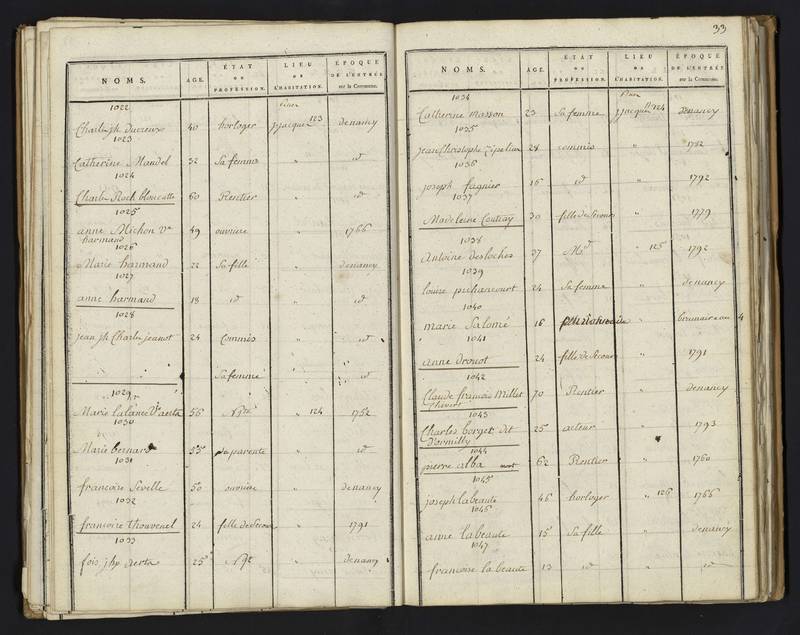 NOMS. AGE. ÉTAT OU PROFESSION. LIEU DE L'HABITATION. ÉPOQUE DE L'ENTRÉE sur la Commune.
1022
Charle jh Ducreux 40 horloger p. jacque 123 denancy
1023
Catherine Mandel 32 Sa femme " id
1024
Charle Roch 60 Rentier " id
1025
anne Michon Ve 49 ouvriere " 1766
harmand
1026
Marie harmand 22 Sa fille " denancy
1027
anne harmand 18 id " id
1028
jean jh Charle jeanot 24 Commis " id
Sa femme " id
1029
Marie Lalance Ve aerta 56 Ngte " 124 1752
1030
Marie bernard 55 Sa parente " id
1031
francoise Seville 50 ouvriere " denancy
1032
francoise thouvenel 24 fille de Secour " 1791
1033
fois jhp aerta 25 Ngt " denancy
33
NOMS. AGE. ÉTAT OU PROFESSION. LIEU DE L'HABITATION. ÉPOQUE DE L'ENTRÉE sur la Commune.
1034
Catherine masson 23 Sa femme p. jacque 124 denancy
1035
jean Christophe 28 commis " 1782
1036
joseph fagnier 16 id " 1792
1037
Madeleine Coutray 30 fille de Secour " 1779
1038
Antoine desloches 37 Md " 125 1792
1039
louise prehancourt 24 Sa femme " denancy
1040
marie Salomé 16 " 4
1041
anne Drouot 24 fille de Secour " 1791
1042
Claude francois Millet 70 Rentier " denancy
Chivert
1043
Charles borget dit 25 acteur " 1793
D'ormilly
1044
pierre alba mort 62 Rentier " 1760
1045
joseph labeaute 46 horloger " 126 1766
1046
anne labeaute 15 Sa fille " denancy
1047
francoise la beaute 13 id " id